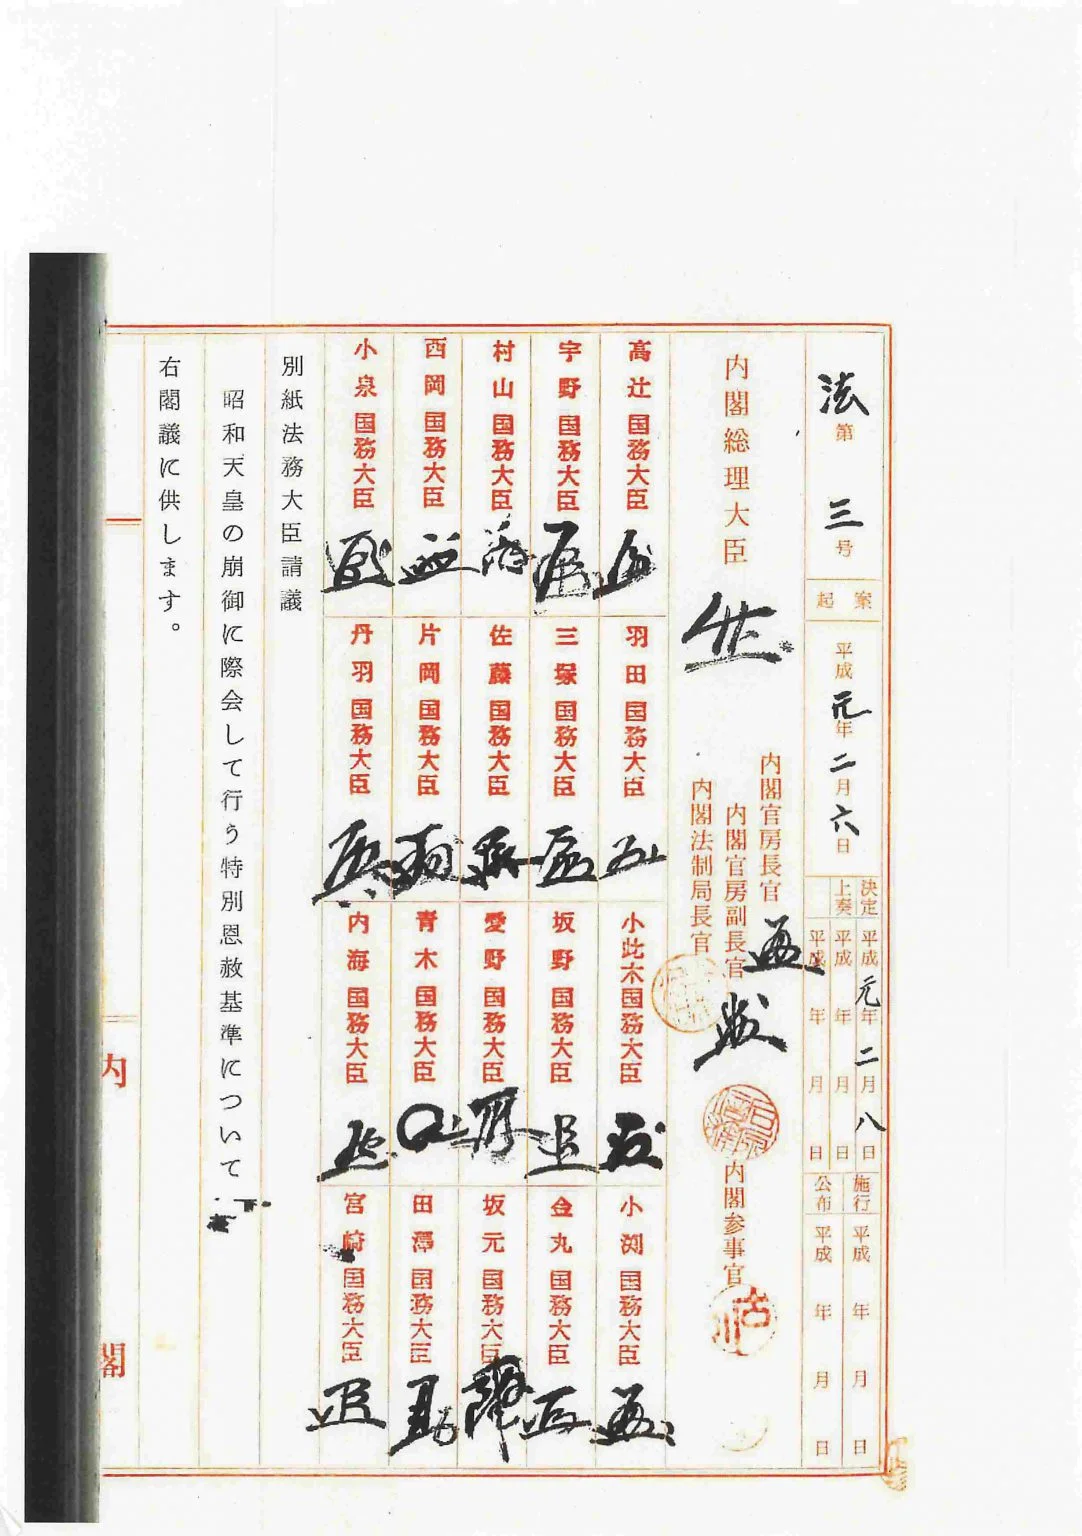 法第三号
起案
平成元年二月六日
決定
上奏
平成元年二月八日
平成 年 月 日
平成 年 月 日
施行
公布
平成 年 月 日
平成 年 月 日
内閣総理大臣
内閣官房長官
内閣官房副長官
内閣法制局長官
内閣参事官
古川
高辻国務大臣
羽田国務大臣
小此木国務大臣
小渕国務大臣
宇野国務大臣
三塚国務大臣
坂野国務大臣
金丸国務大臣
村山国務大臣
佐藤国務大臣
愛野国務大臣
坂元国務大臣
西岡国務大臣
片岡国務大臣
青木国務大臣
田澤国務大臣
小泉国務大臣
丹羽国務大臣
内海国務大臣
宮崎国務大臣
別紙法務大臣請議
昭和天皇の崩御に際会して行う特別恩赦基準について
右閣議に供します。
内閣